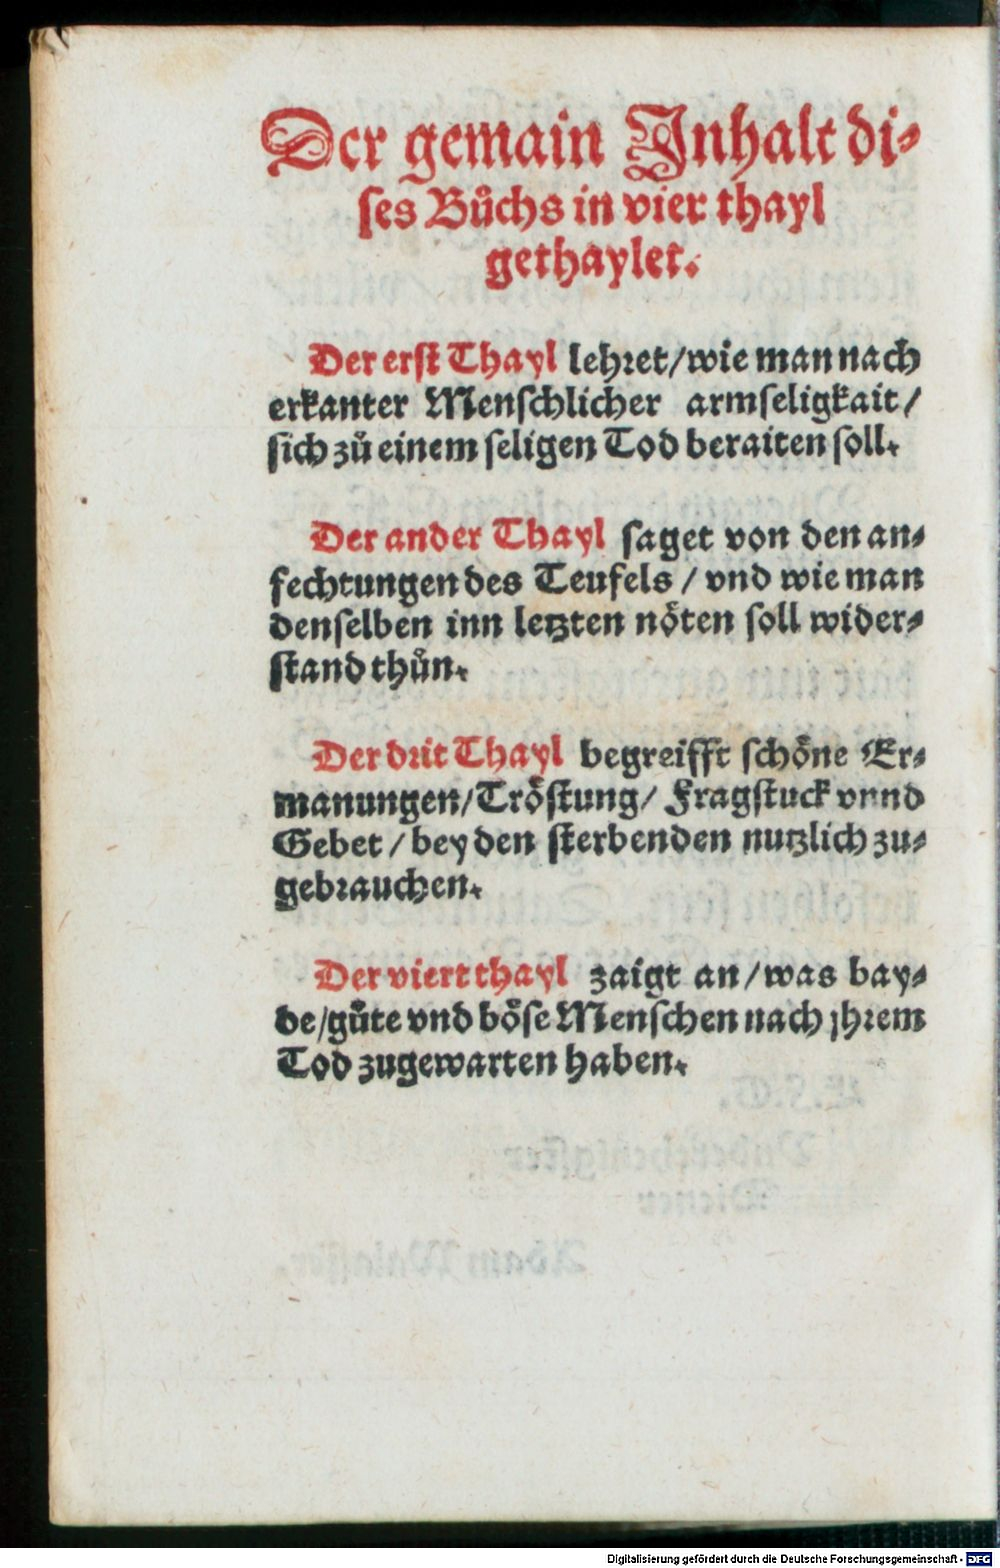 Der gemain Inhalt di⸗
ses Bůchs in vier thayl
gethaylet.
Der erst Thayl lehret/wie man nach
erkanter Menschlicher armseligkait/
sich zů einem seligen Tod beraiten soll.
Der ander Thayl saget von den an⸗
fechtungen des Teufels / vnd wie man
denselben inn letzten nöten soll wider⸗
stand thůn.
Der drit Thayl begreifft schöne Er⸗
manungen/Tröstung/ Fragstuck vnnd
Gebet / bey den sterbenden nutzlich zu⸗
gebrauchen.
Der viert thayl zaigt an/was bay⸗
de/gůte vnd böse Menschen nach jhrem
Tod zugewarten haben.
Digitalisierung gefördert durch die Deutsche Forschungsgemeinschaft - DFG